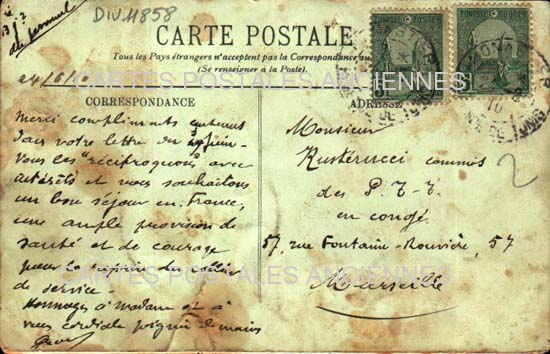 DIV4858
CARTE POSTALE
Tous les Pays étrangers n'acceptent pas la Correspondance au
(Se renseigner à la Poste).
CARTES POSTALES ANCIENNES
24/6/10
CORRESPONDANCE
Merci compliments contenus
dans votre lettre du
Vous les "réciproquons" avec
intérêts et vous souhaitons
un bon séjour en France,
une ample provision de
santé et de courage
pour la reprise des colliers
de service
Hommages à Madame et à
vous cordiale poignée de mains
TUNISIE
POSTES
TUNISIE
POSTES
ADRESSE
Monsieur
Rusterucci commis
des P.T.T.
en congé
57, rue Fontaine-Rouvière, 57
Marseille
2
CARTES POSTALES ANCIENNES